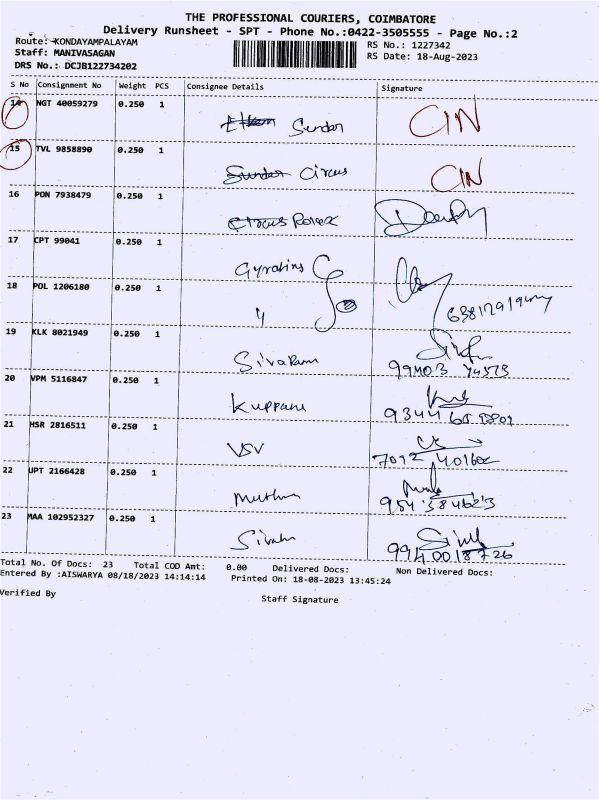 THE PROFESSIONAL COURIERS, COIMBATORE
Delivery Runsheet - SPT - Phone No.:0422-3505555 - Page No.:2
Route: KONDAYAMPALAYAM
RS No.: 1227342
Staff: MANIVASAGAN
RS Date: 18-Aug-2023
DRS No.: DCJB122734202
S No Consignment No Weight PCS Consignee Details Signature
14 NGT 40059279 0.250 1 Sundar CIN
15 TVL 9858890 0.250 1 Sundar Circus CIN
16 PON 7938479 0.250 1 Circus Rolex
17 CPT 99041 0.250 1
18 POL 1206180 0.250 1 "
19 KLK 8021949 0.250 1 Sivaram
20 VPM 5116847 0.250 1
21 HSR 2816511 0.250 1 VSV
22 UPT 2166428 0.250 1
23 MAA 102952327 0.250 1
Total No. Of Docs: 23 Total COD Amt: 0.00 Delivered Docs: Non Delivered Docs:
Entered By :AISWARYA 08/18/2023 14:14:14 Printed On: 18-08-2023 13:45:24
Verified By Staff Signature